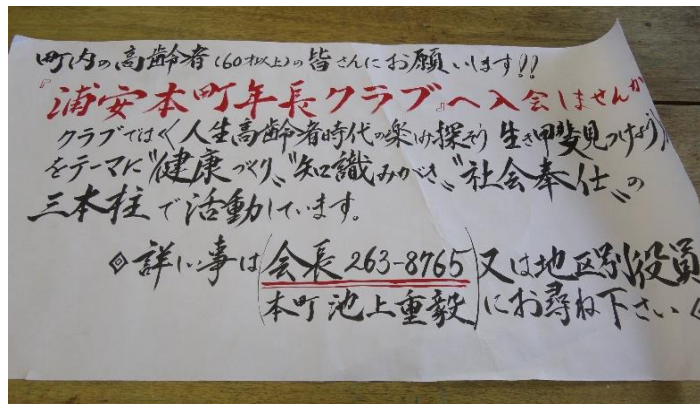 町内の高齢者(60才以上)の皆さんにお願いします!!
『浦安本町年長クラブ』へ入会しませんか
クラブでは《人生高齢者時代の楽しみ探そう 生き甲斐見つけよう》
をテーマに"健康づくり""知識みがき""社会奉仕"の
三本柱で活動しています。
◎詳しい事は(会長263-8765 本町 池上重毅)又は地区別役員
にお尋ね下さい